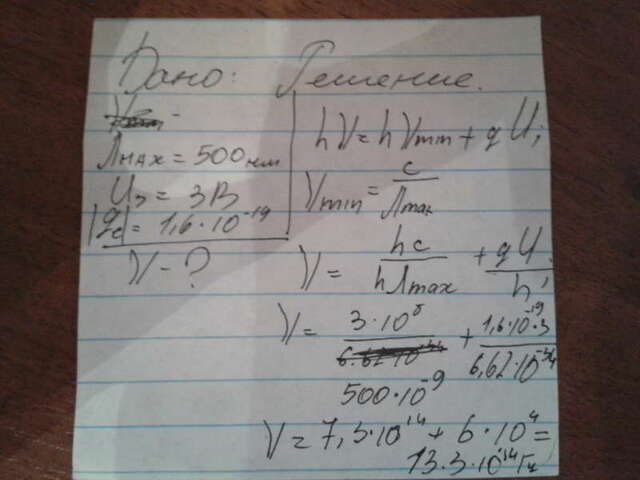 Дано:
λmax = 500 нм
Uз = 3В
|qe| = 1,6·10⁻¹⁹
ν - ?
Решение.
hν = hνmin + qU;
νmin = c/λmax
ν = hc/hλmax + qU/h;
ν = 3·10⁸/500·10⁻⁹ + 1,6·10⁻¹⁹·3/6,62·10⁻³⁴
ν = 7,3·10¹⁴ + 6·10⁴ =
13.3·10¹⁴ Гц